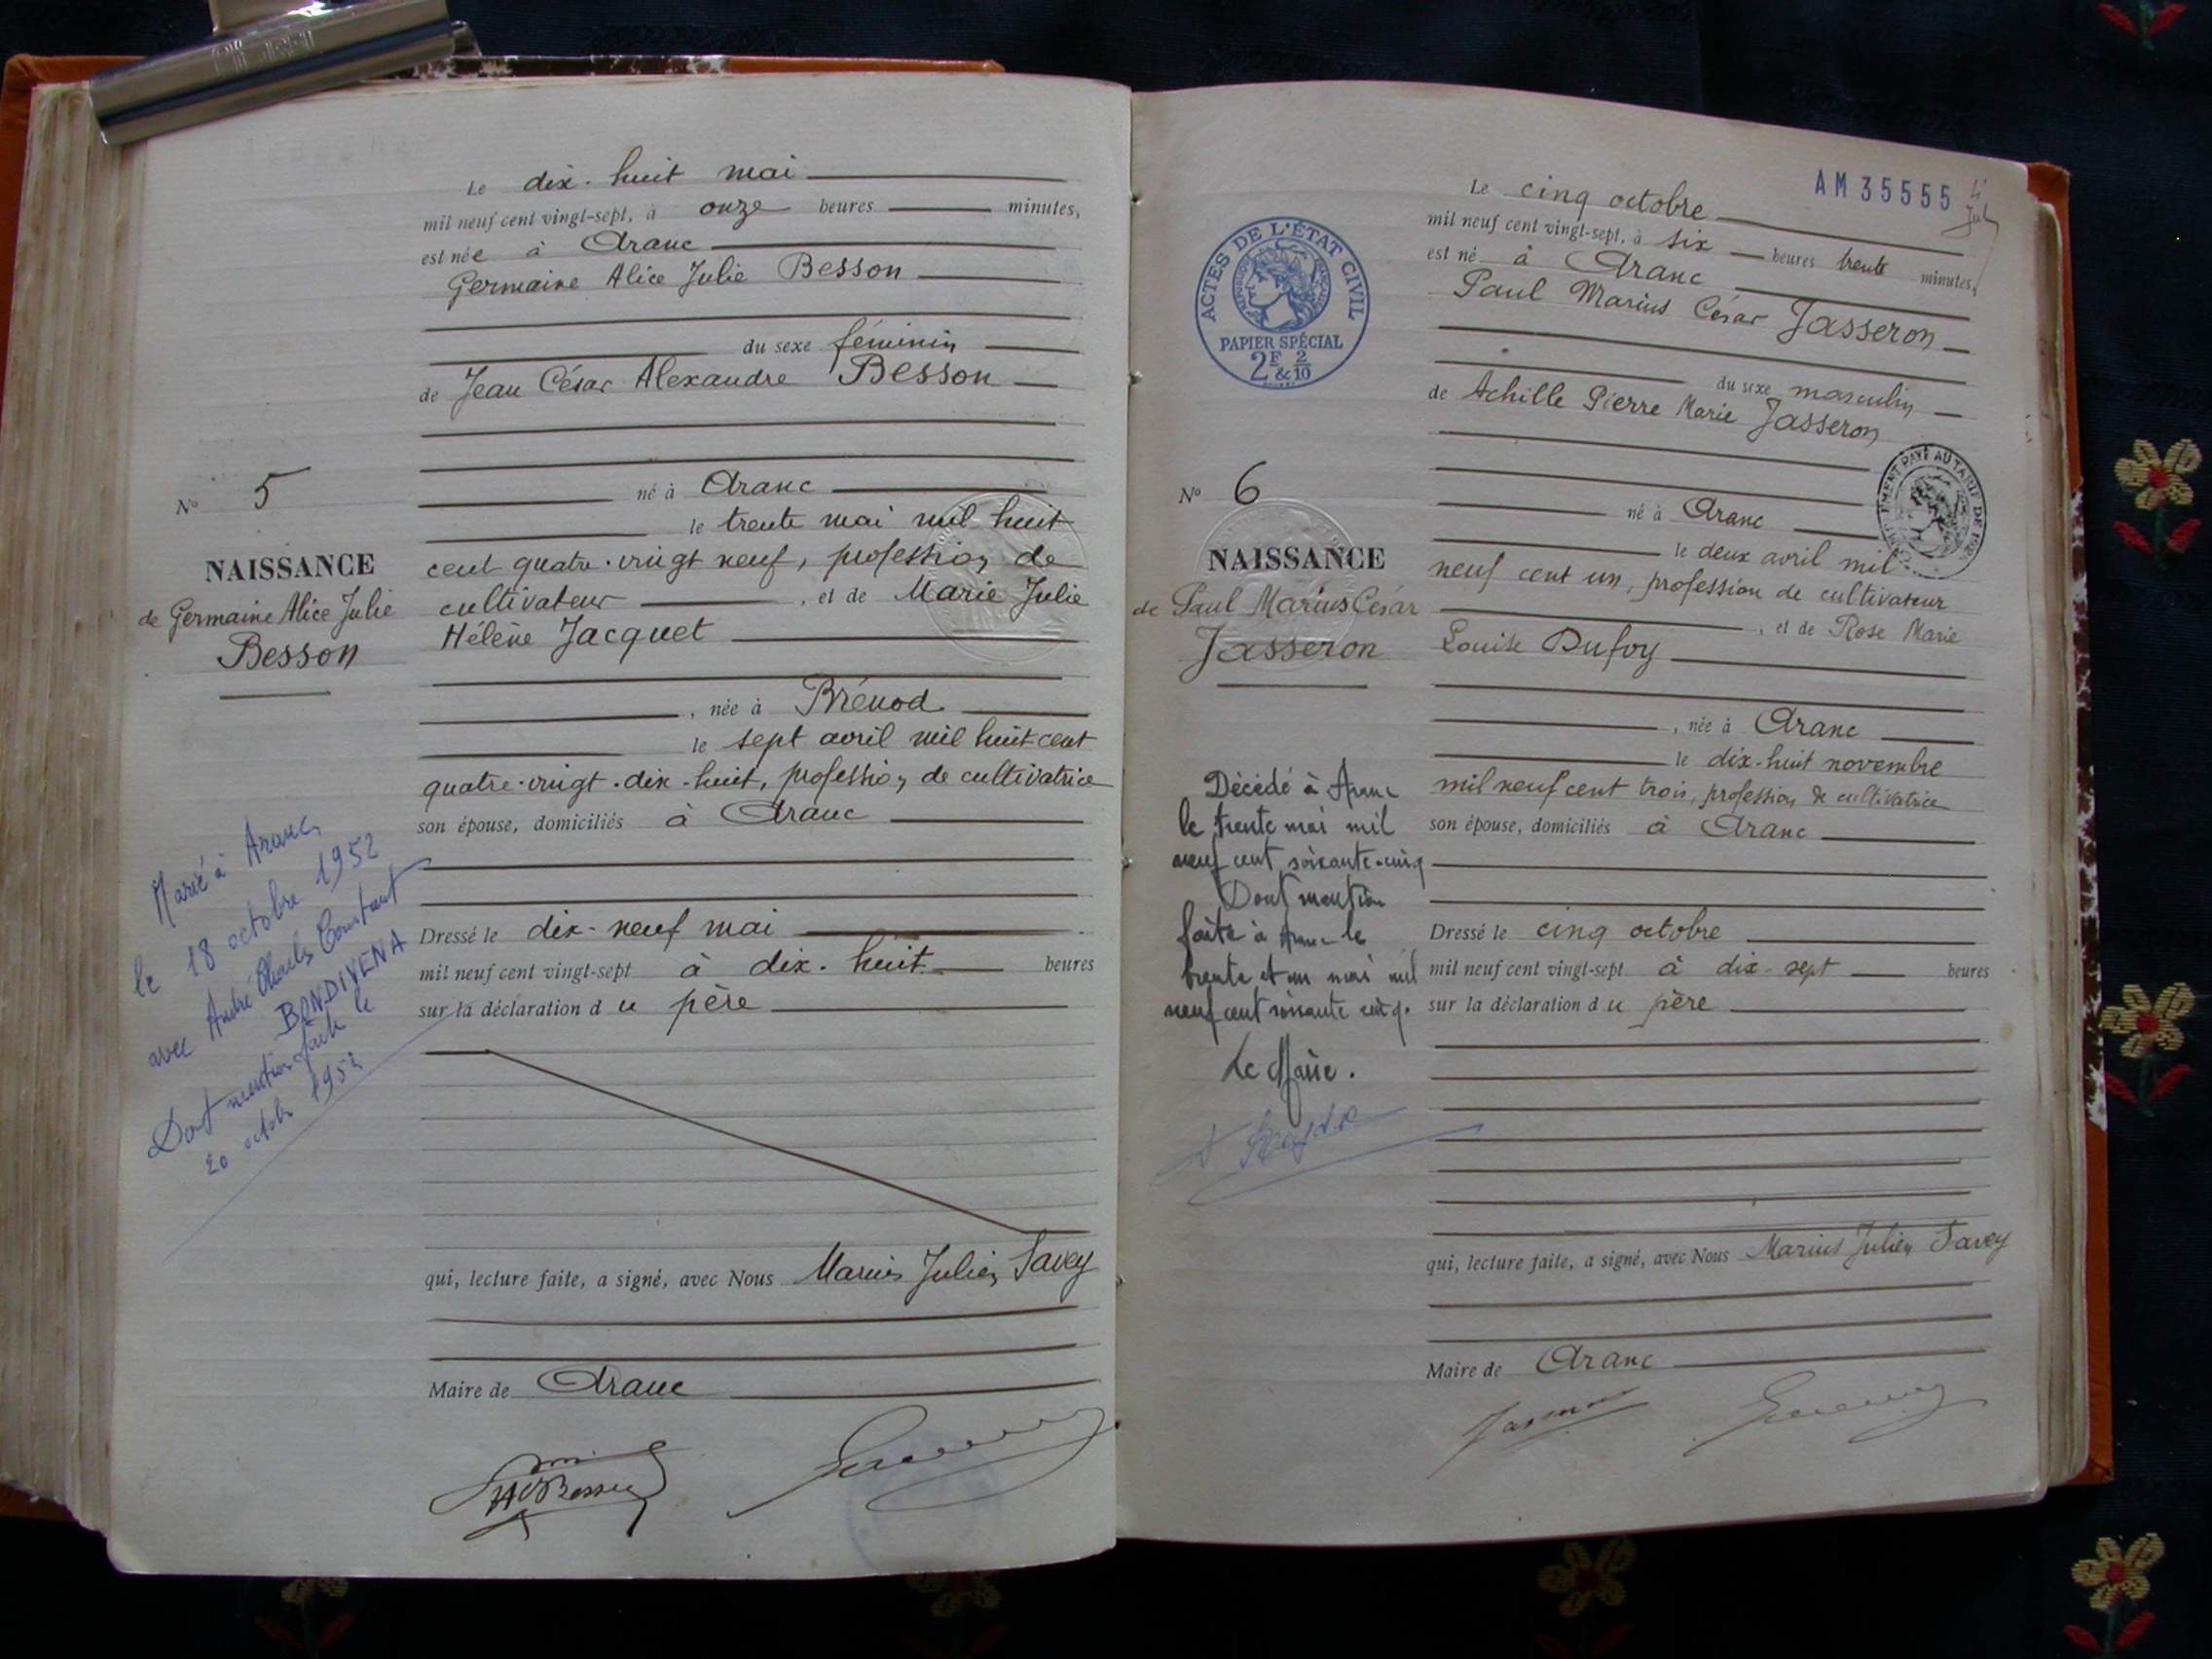 Le dix-huit mai
mil neuf cent vingt-sept, à onze heures minutes,
est née à Aranc
Germaine Alice Julie Besson
du sexe féminin
de Jean César Alexandre Besson
né à Aranc
le trente mai mil huit
cent quatre-vingt neuf, profession de
cultivateur, et de Marie Julie
Hélène Jacquet
, née à Brénod
le sept avril mil huit cent
quatre-vingt-dix-huit, profession de cultivatrice
son épouse, domiciliés à Aranc
Dressé le dix-neuf mai
mil neuf cent vingt-sept à dix-huit heures
sur la déclaration du père
qui, lecture faite, a signé, avec Nous Marius Julien Savey
Maire de Aranc
No 5
NAISSANCE
de Germaine Alice Julie
Besson
Marié à Aranc,
le 18 octobre 1952
avec André Charles Constant
BONDIVENA
Dont mention faite le
20 octobre 1952
AM 35555
ACTES DE L'ÉTAT CIVIL
RÉPUBLIQUE FRANÇAISE
PAPIER SPÉCIAL
2F & 2/10
Le cinq octobre
mil neuf cent vingt-sept, à six heures trente minutes,
est né à Aranc
Paul Marius César Jasseron
du sexe masculin
de Achille Pierre Marie Jasseron
né à Aranc
le deux avril mil
neuf cent un, profession de cultivateur
, et de Rose Marie
Louise Dufoy
, née à Aranc
le dix-huit novembre
mil neuf cent trois, profession de cultivatrice
son épouse, domiciliés à Aranc
Dressé le cinq octobre
mil neuf cent vingt-sept à dix-sept heures
sur la déclaration du père
qui, lecture faite, a signé, avec Nous Marius Julien Savey
Maire de Aranc
Jasseron
No 6
NAISSANCE
de Paul Marius César
Jasseron
Décédé à Aranc
le trente mai mil
neuf cent soixante-cinq
Dont mention
faite à Aranc le
trente et un mai mil
neuf cent soixante cinq.
Le Maire.